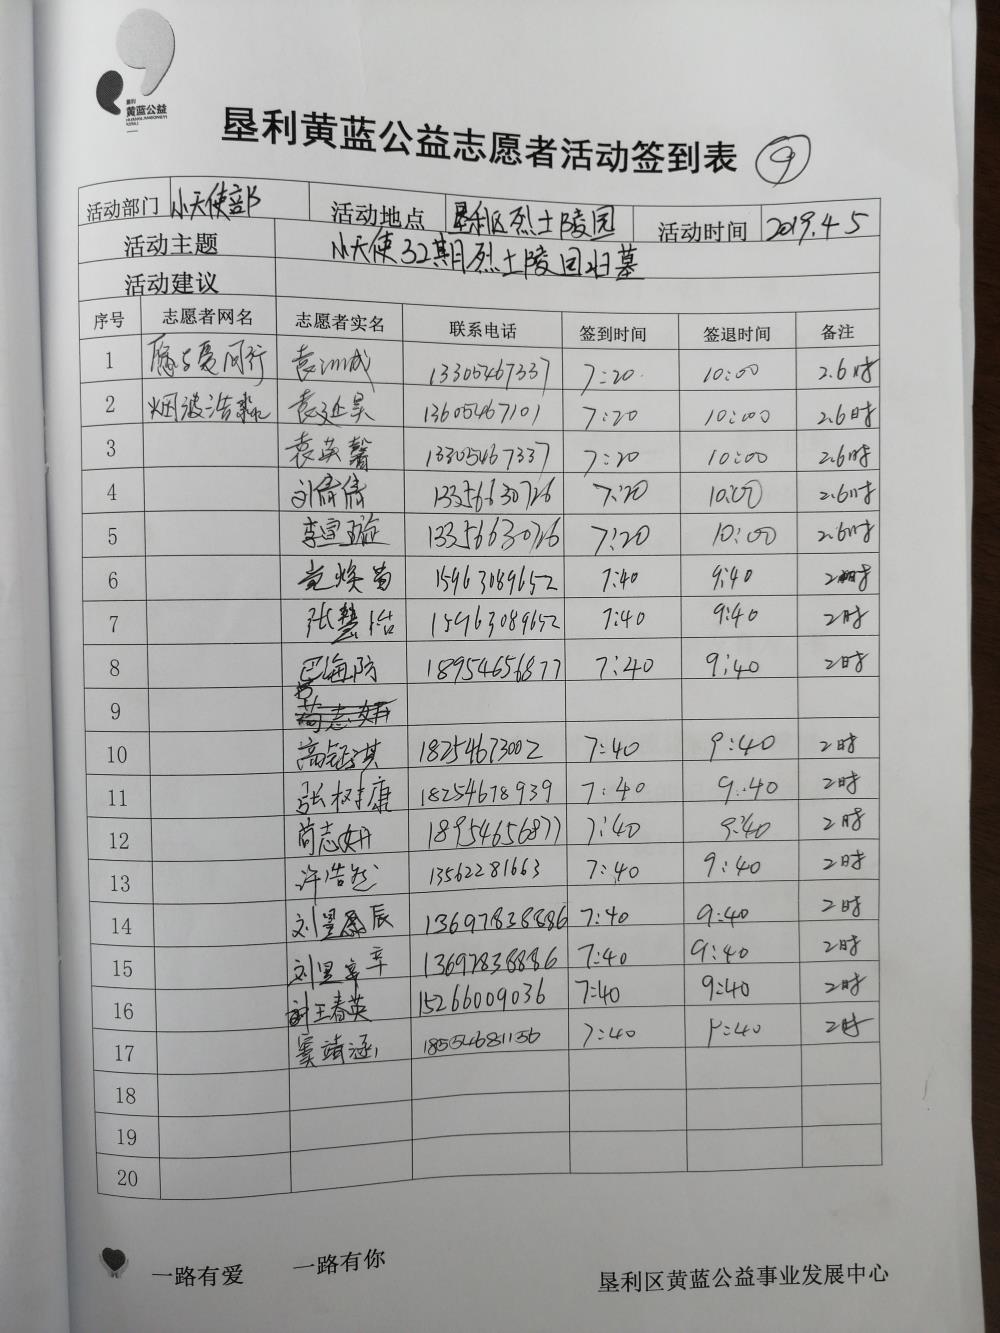 垦利
黄蓝公益
垦利黄蓝公益志愿者活动签到表 ⑨
活动部门 小天使部 活动地点 垦利区烈士陵园 活动时间 2019.4.5
活动主题 小天使32期烈士陵园扫墓
活动建议
序号 志愿者网名 志愿者实名 联系电话 签到时间 签退时间 备注
1 同行 袁 13305467337 7:20 10:00 2.6时
2 烟波浩淼 袁延昊 13605467101 7:20 10:00 2.6时
3 袁英馨 13305467337 7:20 10:00 2.6时
4 刘倩倩 13356630726 7:20 10:00 2.6时
5 李宣璇 13356630726 7:20 10:00 2.6时
6 15963089652 7:40 9:40 2时
7 张慧怡 15963089652 7:40 9:40 2时
8 巴海防 18954656877 7:40 9:40 2时
9
10 高 18254673002 7:40 9:40 2时
11 张树康 18254678939 7:40 9:40 2时
12 尚志妍 18954656877 7:40 9:40 2时
13 许浩然 13562281663 7:40 9:40 2时
14 刘昱辰 13697838886 7:40 9:40 2时
15 刘昱 13697838886 7:40 9:40 2时
16 王春英 15266009036 7:40 9:40 2时
17 窦靖涵 18554681156 7:40 9:40 2时
18
19
20
一路有爱 一路有你
垦利区黄蓝公益事业发展中心